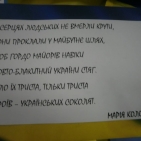 СЕРЦЯХ ЛЮДСЬКИХ НЕ ВМЕРЛИ КРУТИ,
ПРОКЛАЛИ У МАЙБУТНЄ ШЛЯХ,
ГОРДО МАЙОРІВ НАВІКИ
БЛАКИТНИЙ УКРАЇНИ СТЯГ.
ЇХ ТРИСТА, ТІЛЬКИ ТРИСТА
УКРАЇНСЬКИХ СОКОЛЯТ.
МАРІЯ